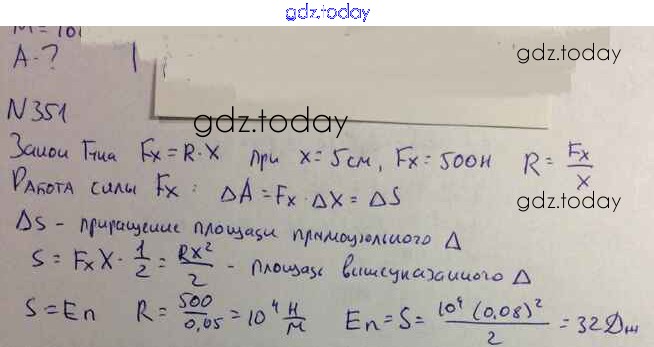 gdz.today
А-?
gdz.today
N351
gdz.today
Закон Гука Fx = R·X при x = 5см, Fx = 500Н R = Fx/X
Работа силы Fx: ΔA = Fx · ΔX = ΔS
gdz.today
ΔS - приращение площади прямоугольного Δ
S = FxX · 1/2 = RX²/2 - площадь вышеуказанного Δ
S = En R = 500/0,05 = 10⁴ Н/м En = S = 10⁴ (0,08)²/2 = 32Дж